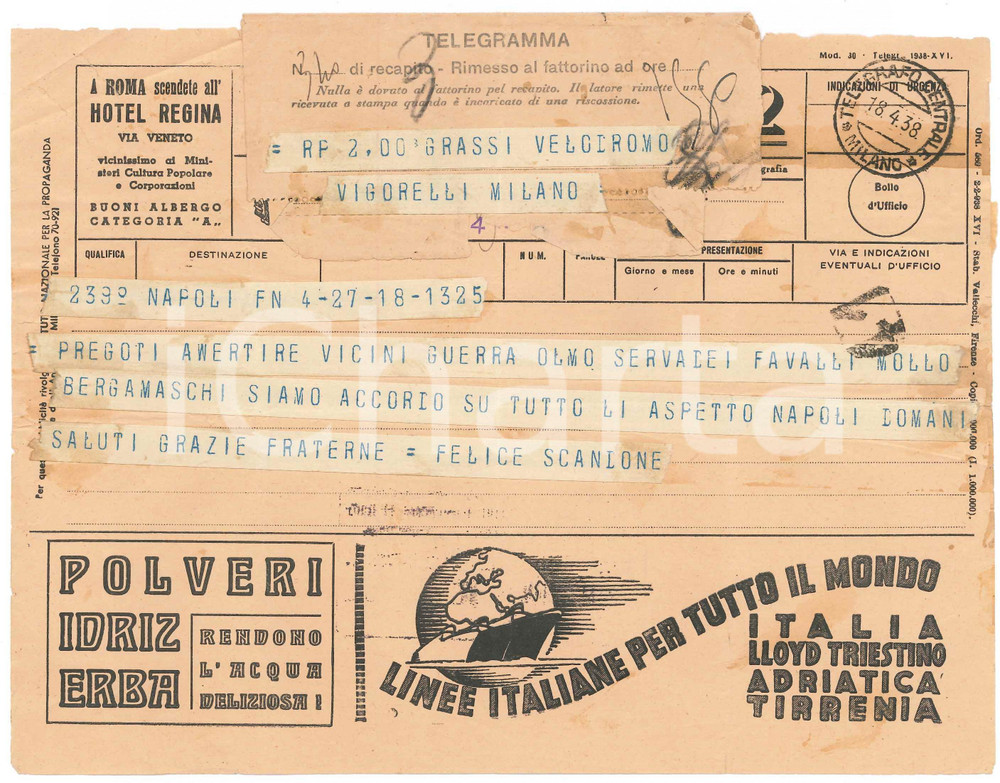 TELEGRAMMA
di recapito - Rimesso al fattorino ad ore
Nulla è dovuto al fattorino pel recapito. Il latore rimette una
ricevuta a stampa quando è incaricato di una riscossione.
Mod. 30 - Telegr. 1938-XVI.
A ROMA scendete all'
HOTEL REGINA
VIA VENETO
vicinissimo ai Mini-
steri Cultura Popolare
e Corporazioni
BUONI ALBERGO
CATEGORIA "A"
2
INDICAZIONI DI URGENZA
TELEGRAFO CENTRALE
18.4.38.
MILANO
Bollo
d'Ufficio
= RP 2,00 GRASSI VELODROMO
VIGORELLI MILANO =
4
QUALIFICA
DESTINAZIONE
NUM.
PAROLE
PRESENTAZIONE
Giorno e mese
Ore e minuti
VIA E INDICAZIONI
EVENTUALI D'UFFICIO
239º NAPOLI FN 4-27-18-1325
= PREGOTI AWERTIRE VICINI GUERRA OLMO SERVADEI FAVALLI MOLLO
BERGAMASCHI SIAMO ACCORDO SU TUTTO LI ASPETTO NAPOLI DOMANI
SALUTI GRAZIE FRATERNE = FELICE SCANDONE
iCharta
NAZIONALE PER LA PROPAGANDA
Telefono 70-921
Per
Ord. 660 - 2-2-938 XVI - Stab. Vallecchi, Firenze - (l. 1.000.000).
POLVERI
IDRIZ
ERBA
RENDONO
L'ACQUA
DELIZIOSA!
LINEE ITALIANE PER TUTTO IL MONDO
ITALIA
LLOYD TRIESTINO
ADRIATICA
TIRRENIA